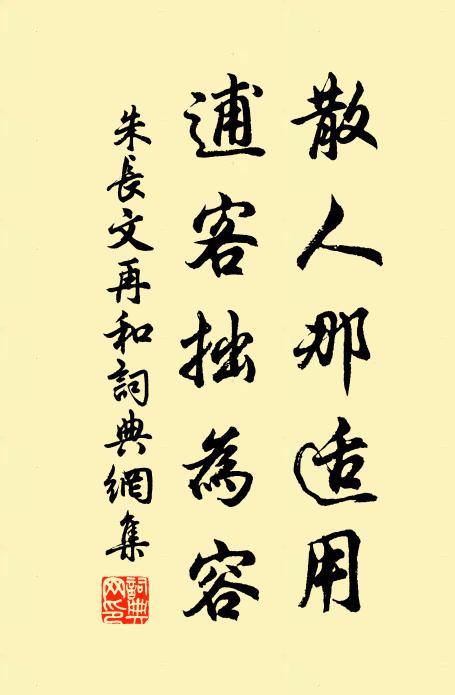 散人那适用
逋客拙為容
朱長文再和詞典網集